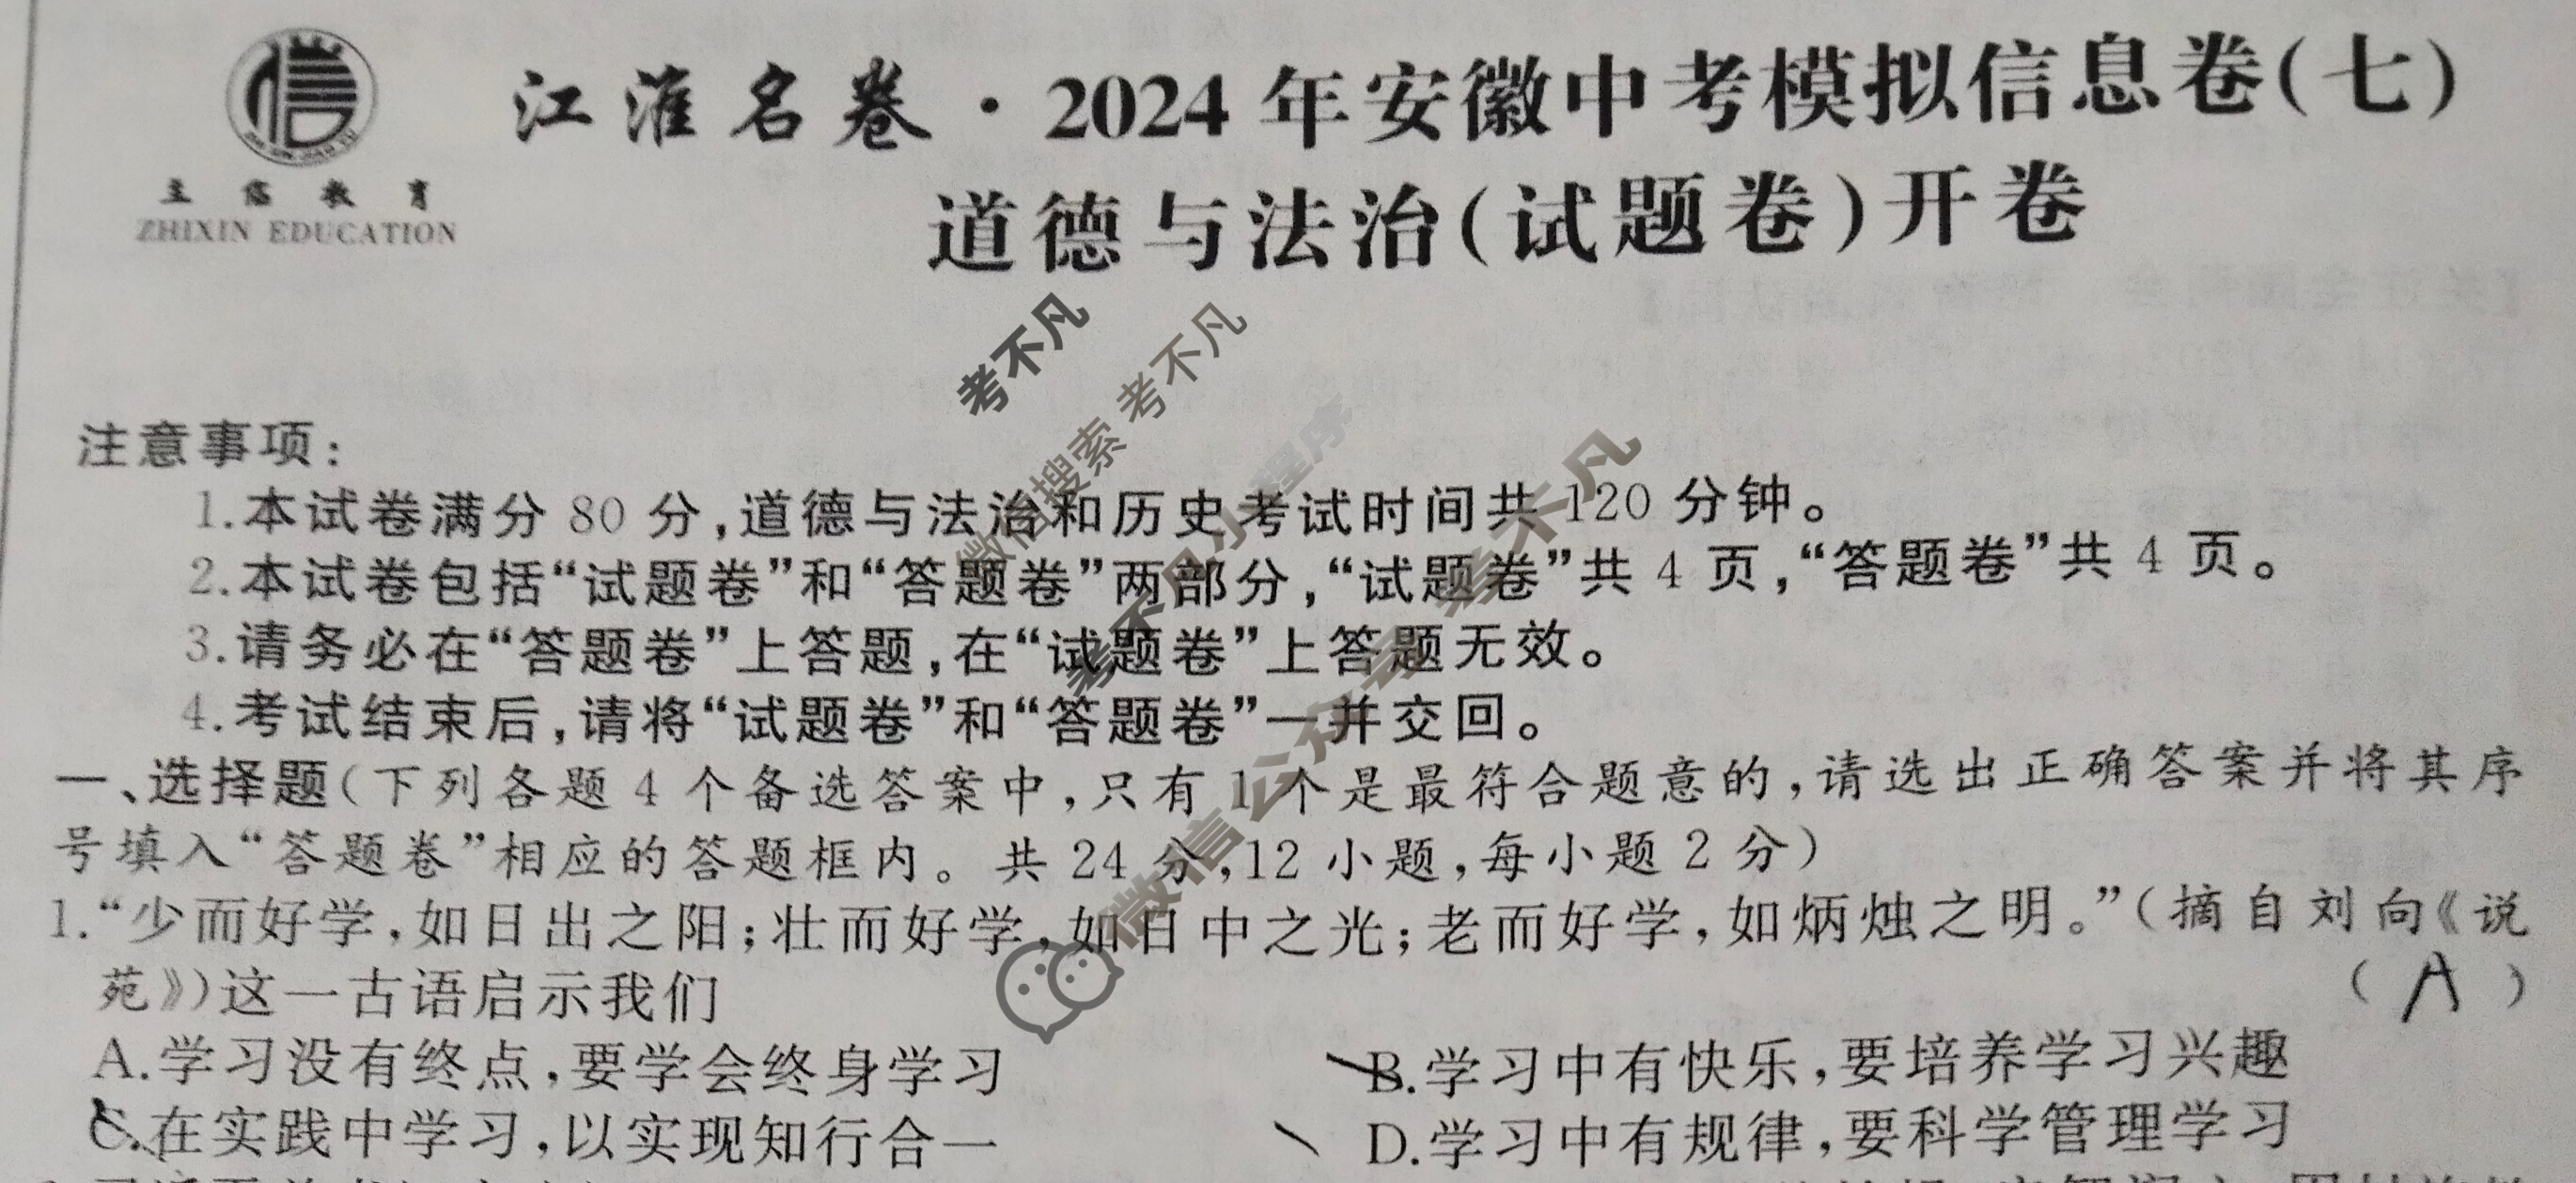 江淮名卷·2024年安徽中考模拟信息卷(七)
ZHIXIN EDUCATION
道德与法治(试题卷)开卷
考不凡
微信搜索 考不凡
考不凡小程序
微信公众号 考不凡
注意事项:
1.本试卷满分 80 分,道德与法治和历史考试时间共 120 分钟。
2.本试卷包括“试题卷”和“答题卷”两部分,“试题卷”共 4 页,“答题卷”共 4 页。
3.请务必在“答题卷”上答题,在“试题卷”上答题无效。
4.考试结束后,请将“试题卷”和“答题卷”一并交回。
一、选择题(下列各题 4 个备选答案中,只有 1 个是最符合题意的,请选出正确答案并将其序
号填入“答题卷”相应的答题框内。共 24 分,12 小题,每小题 2 分)
1.“少而好学,如日出之阳;壮而好学,如日中之光;老而好学,如炳烛之明。”(摘自刘向《说
苑》)这一古语启示我们 ( A )
A.学习没有终点,要学会终身学习 B.学习中有快乐,要培养学习兴趣
C.在实践中学习,以实现知行合一 D.学习中有规律,要科学管理学习